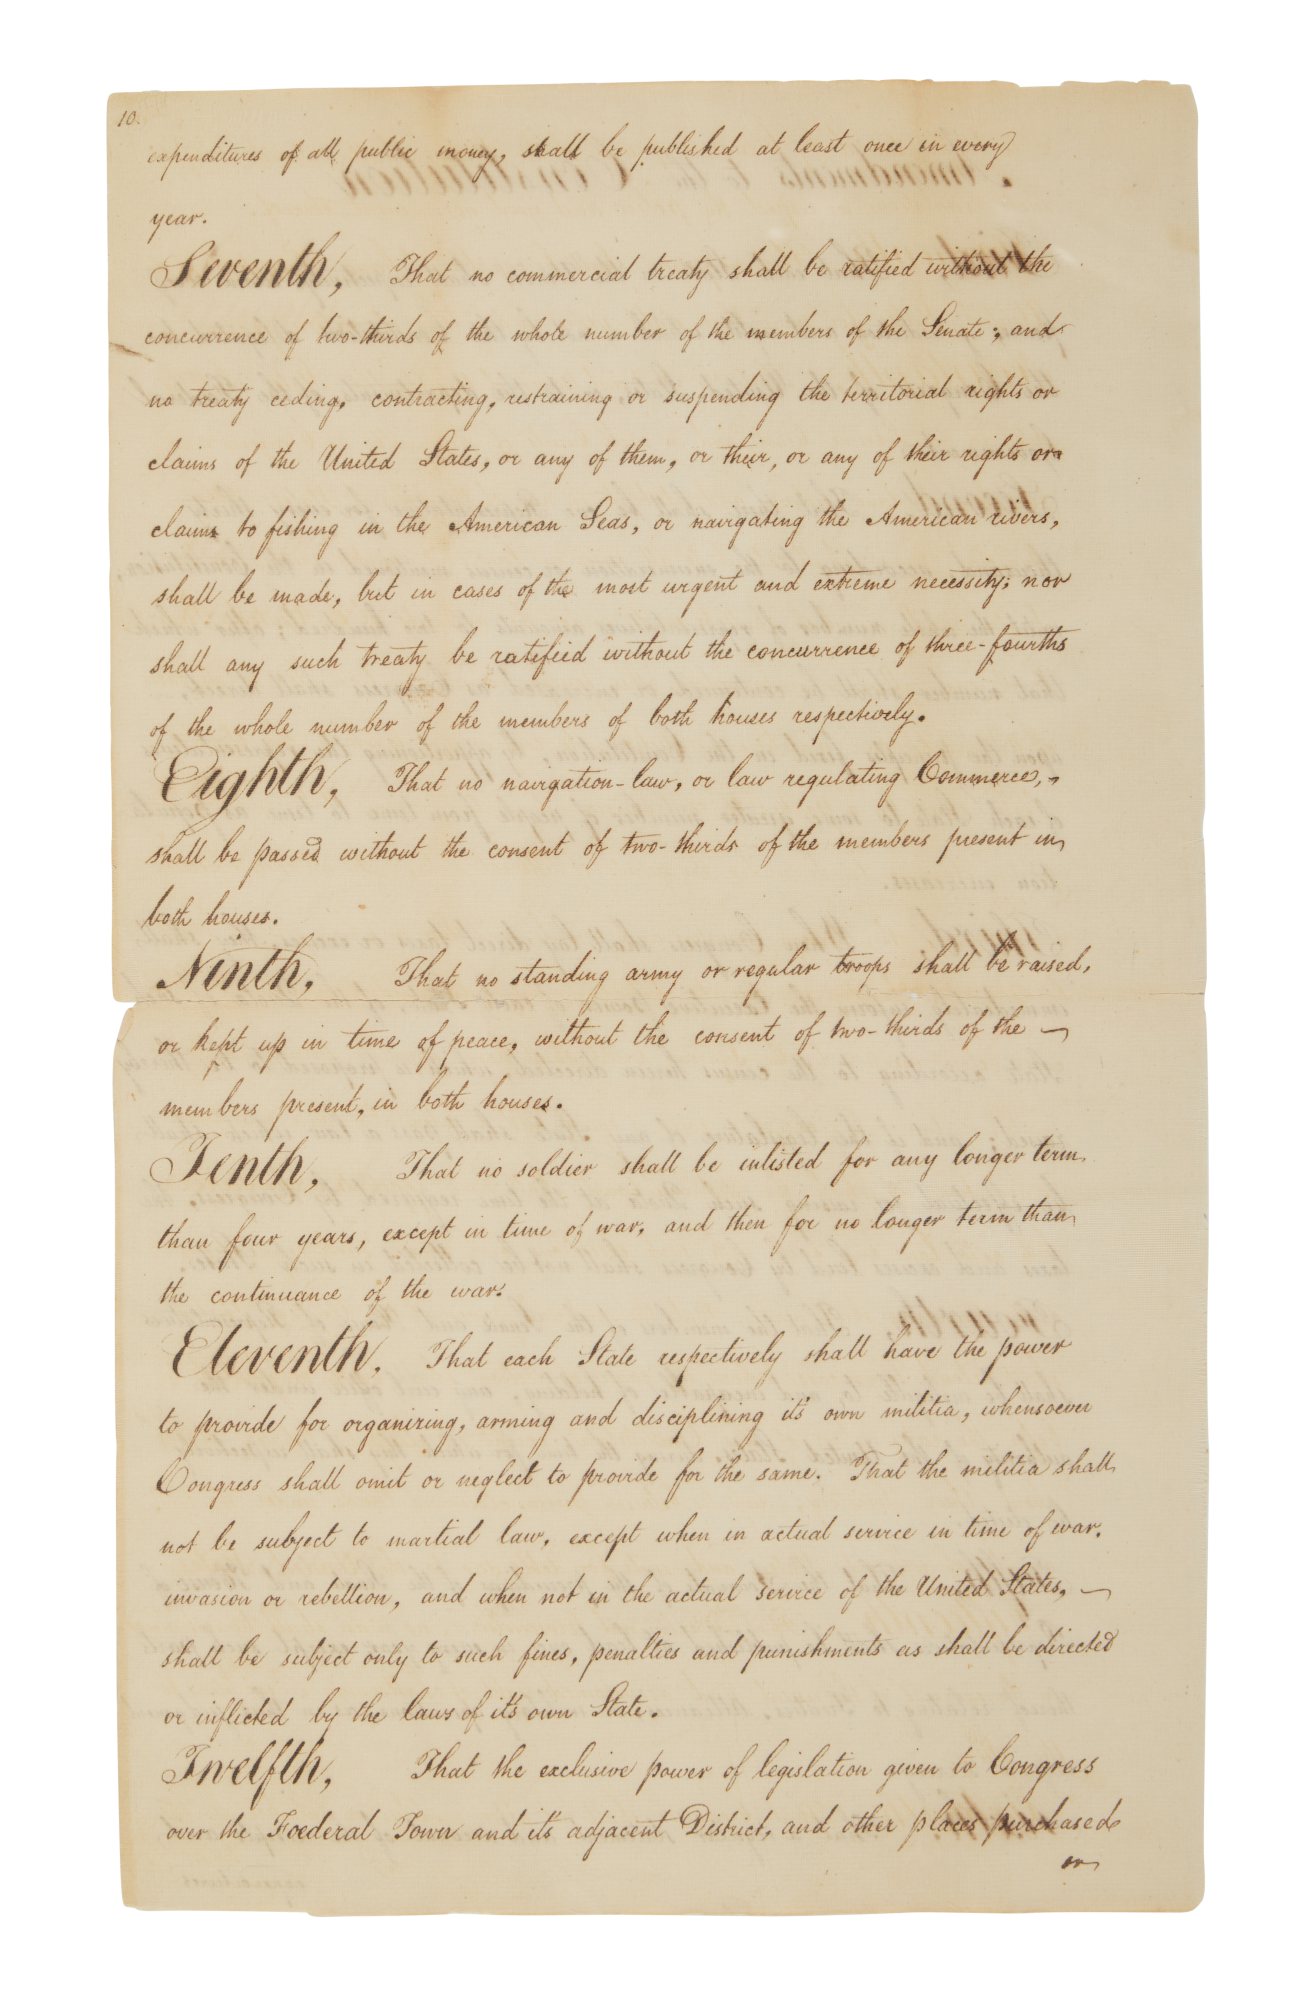 10.
expenditures of all public money, shall be published at least once in every
year.
Seventh, That no commercial treaty shall be ratified without the
concurrence of two-thirds of the whole number of the members of the Senate; and
no treaty ceding, contracting, restraining or suspending the territorial rights or
claims of the United States, or any of them, or their, or any of their rights or
claims to fishing in the American Seas, or navigating the American rivers,
shall be made, but in cases of the most urgent and extreme necessity; nor
shall any such treaty be ratified without the concurrence of three-fourths
of the whole number of the members of both houses respectively.
Eighth, That no navigation-law, or law regulating Commerce,
shall be passed without the consent of two-thirds of the members present in
both houses.
Ninth, That no standing army or regular troops shall be raised,
or kept up in time of peace, without the consent of two-thirds of the
members present, in both houses.
Tenth, That no soldier shall be inlisted for any longer term
than four years, except in time of war, and then for no longer term than
the continuance of the war.
Eleventh, That each State respectively shall have the power
to provide for organizing, arming and disciplining it's own militia, whensoever
Congress shall omit or neglect to provide for the same. That the militia shall
not be subject to martial law, except when in actual service in time of war,
invasion or rebellion, and when not in the actual service of the United States,
shall be subject only to such fines, penalties and punishments as shall be directed
or inflicted by the laws of it's own State.
Twelfth, That the exclusive power of legislation given to Congress
over the Foederal Town and it's adjacent District, and other places purchased
or